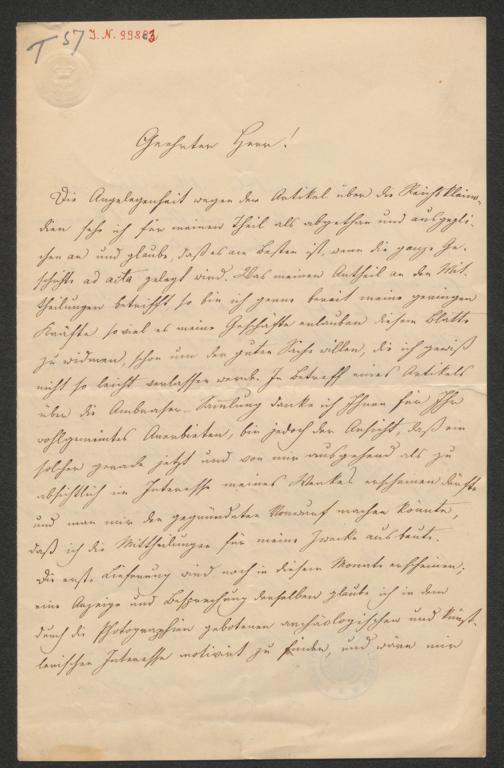 T 57 J. N. 99883
Geehrter Herr!
Die Angelegenheit wegen der Artikel über die Reichskleino-
dien sehe ich für meinen Theil als abgethan und ausgegli-
chen an und glaube, daß es am Besten ist, wenn die ganze Ge-
schichte ad acta gelegt wird. Was meinen Antheil an den Mit-
theilungen betrifft so bin ich gerne bereit meine geringen
Kräfte soviel es meine Geschäfte erlauben diesem Blatte
zu widmen, schon um der guten Sache willen, die ich gewiß
nicht so leicht verlassen werde. In Betreff eines Artikels
über die Ambraser-Sammlung danke ich Ihnen für Ihr
wohlgemeintes Anerbieten, bin jedoch der Ansicht, daß ein
solcher gerade jetzt und von mir ausgehend als zu
absichtlich im Interesse meines Werkes erscheinen dürfte
und man mir den gegründeten Vorwurf machen könnte,
daß ich die Mittheilungen für meine Zwecke ausbeute.
Die erste Lieferung wird noch in diesem Monate erscheinen;
eine Anzeige und Besprechung derselben glaube ich in dem
durch die Photographien gebotenen archäologischen und künst-
lerischen Interesse motivirt zu finden, und wäre mir